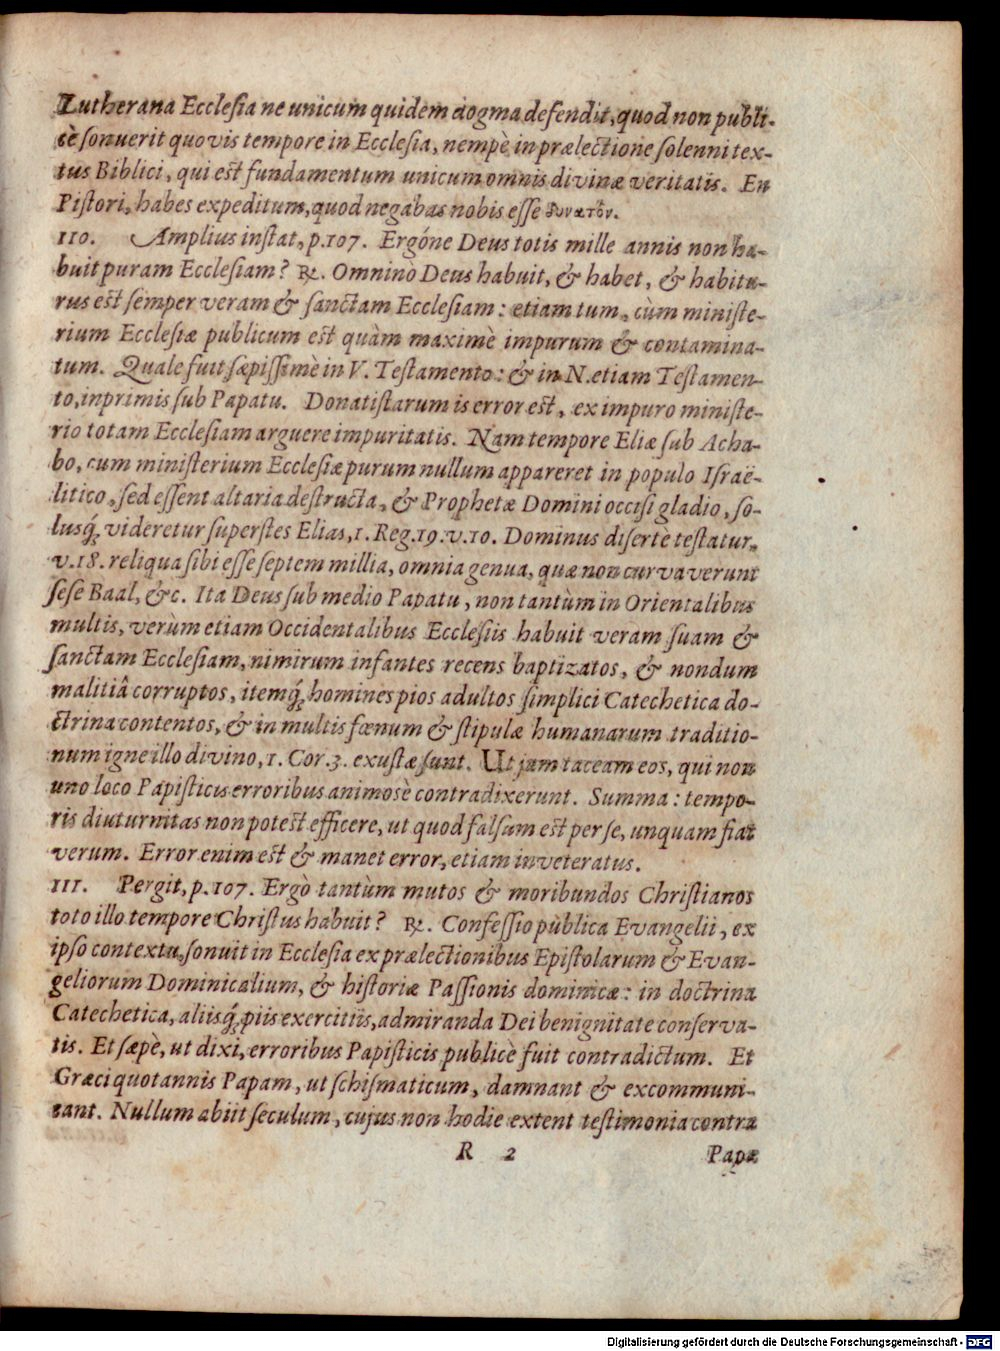 Lutherana Ecclesia ne unicum quidem dogma defendit, quod non publi-
cè sonuerit quovis tempore in Ecclesia, nempè in prælectione solenni tex-
tus Biblici, qui est fundamentum unicum omnis divinæ veritatis. En
Pistori, habes expeditum, quod negabas nobis esse δυνατόν.
110. Amplius instat, p.107. Ergóne Deus totis mille annis non ha-
buit puram Ecclesiam? ℞. Omninò Deus habuit, & habet, & habitu-
rus est semper veram & sanctam Ecclesiam: etiam tum, cùm ministe-
rium Ecclesiæ publicum est quàm maximè impurum & contamina-
tum. Quale fuit sæpissimè in V. Testamento: & in N. etiam Testamen-
to, inprimis sub Papatu. Donatistarum is error est, ex impuro ministe-
rio totam Ecclesiam arguere impuritatis. Nam tempore Eliæ sub Acha-
bo, cum ministerium Ecclesiæ purum nullum appareret in populo Israë-
litico, sed essent altaria destructa, & Prophetæ Domini occisi gladio, so-
lusq́; videretur superstes Elias, 1. Reg. 19. v. 10. Dominus disertè testatur,
v. 18. reliqua sibi esse septem millia, omnia genua, quæ non curvaverunt
sese Baal, &c. Ita Deus sub medio Papatu, non tantùm in Orientalibus
multis, verùm etiam Occidentalibus Ecclesiis habuit veram suam &
sanctam Ecclesiam, nimirum infantes recens baptizatos, & nondum
malitiâ corruptos, itemq́; homines pios adultos simplici Catechetica do-
ctrina contentos, & in multis fœnum & stipulæ humanarum traditio-
num igne illo divino, 1. Cor. 3. exustæ sunt. Ut jam taceam eos, qui non
uno loco Papisticis erroribus animosè contradixerunt. Summa: tempo-
ris diuturnitas non potest efficere, ut quod falsum est per se, unquam fiat
verum. Error enim est & manet error, etiam inveteratus.
111. Pergit, p.107. Ergò tantùm mutos & moribundos Christianos
toto illo tempore Christus habuit? ℞. Confessio pùblica Evangelii, ex
ipso contextu, sonuit in Ecclesia ex prælectionibus Epistolarum & Evan-
geliorum Dominicalium, & historiæ Passionis dominicæ: in doctrina
Catechetica, aliisq́; piis exercitiis, admiranda Dei benignitate conserva-
tis. Et sæpè, ut dixi, erroribus Papisticis publicè fuit contradictum. Et
Græci quotannis Papam, ut schismaticum, damnant & excommuni-
cant. Nullum abiit seculum, cujus non hodie extent testimonia contra
R 2 Papæ
Digitalisierung gefördert durch die Deutsche Forschungsgemeinschaft - DFG